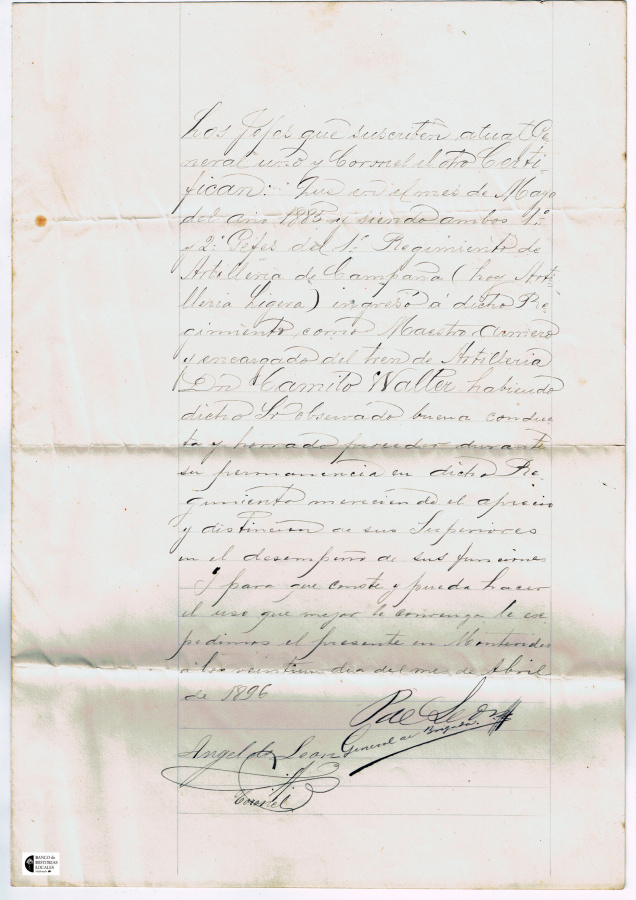 Los Jefes que suscriben atual Ge-
neral uno y Coronel el otro Certi-
fican: Que en el mes de Mayo
del año 1885 y siendo ambos 1º
y 2º Gefes del 1º Regimiento de
Artilleria de Campaña (hoy Arti-
lleria Ligera) ingresó á dicho Re-
gimiento como Maestro Armero
y encargado del tren de Artilleria
Dn Camilo Walter habiendo
dicho Sr observado buena conduc-
ta y honrado proceder durante
su permanencia en dicho Re-
gimiento mereciendo el aprecio
y distincion de sus Superiores
en el desempeño de sus funciones
Y para que conste y pueda hacer
el uso que mejor le convenga le ex-
pedimos el presente en Montevideo
á los veintiun dia del mes de Abril
de 1896
Leon
General de Brigada
Angel de Leon
Coronel
BANCO de
HISTORIAS
LOCALES